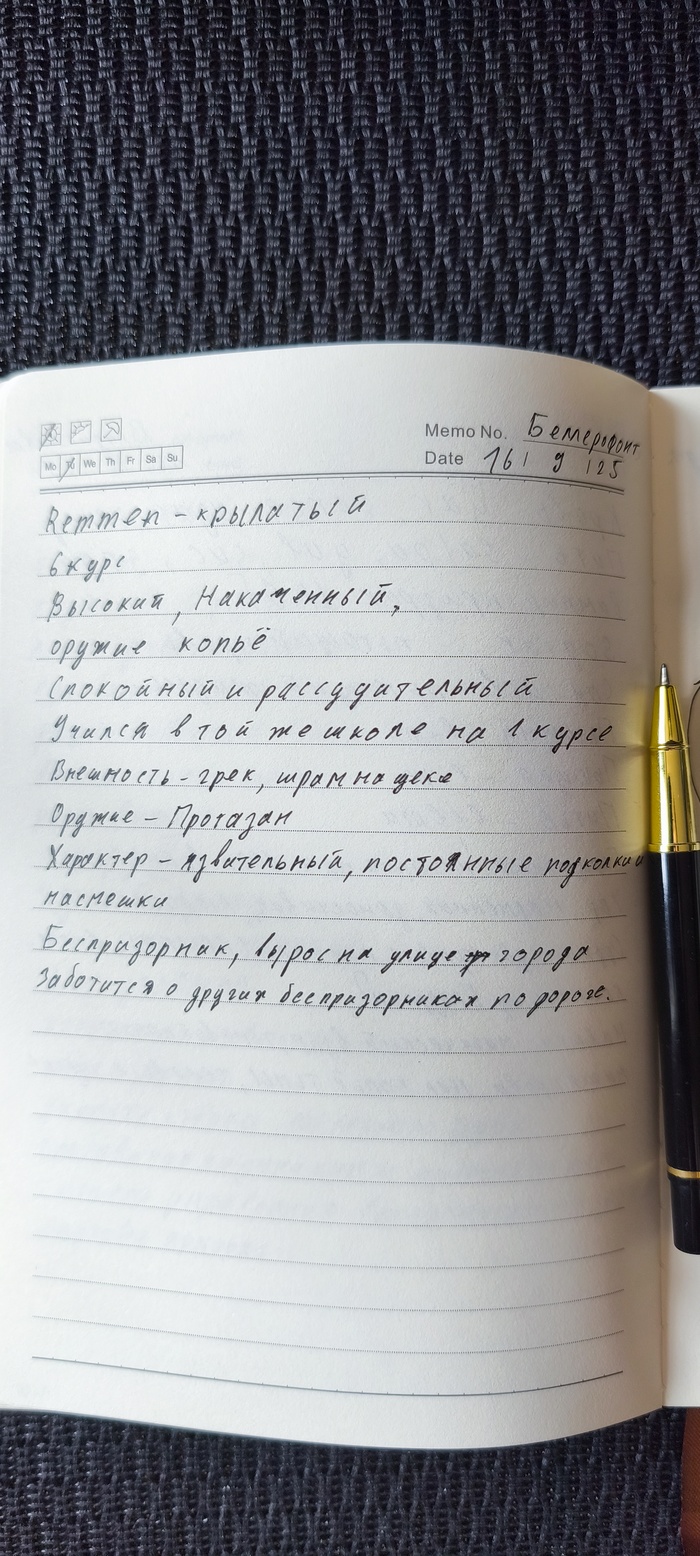 Memo No. Бемерофонт
Mo Tu We Th Fr Sa Su
Date 16 / 9 / 25
Rеттеп - крылатый
6 курс
Высокий, Накаченный,
оружие копьё
Спокойный и рассудительный
Учился в той же школе на 1 курсе
Внешность - грек, шрам на щеке
Оружие - Протазан
Характер - язвительный, постоянные подколки и
насмешки
Беспризорник, вырос на улице города
Заботится о других беспризорниках по дороге.